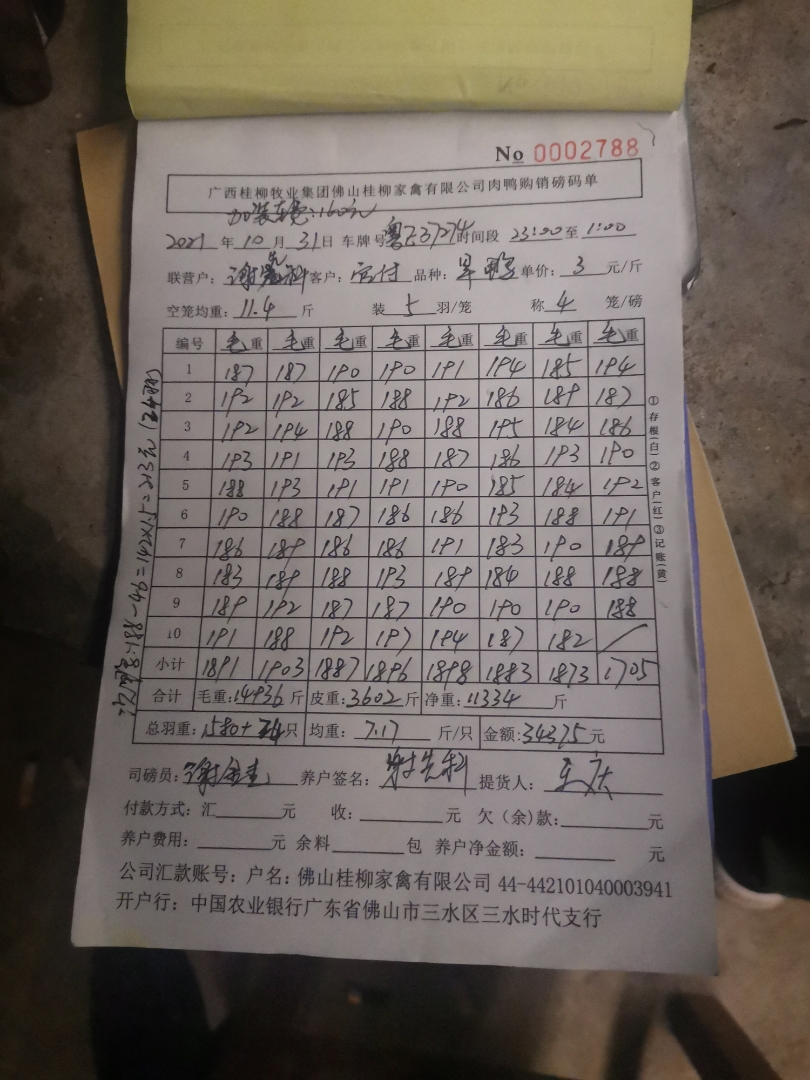 No 0002788
广西桂柳牧业集团佛山桂柳家禽有限公司肉鸭购销磅码单
加装车费:160元
2021 年 10 月 31 日 车牌号 时间段 23:00 至 1:00
联营户: 客户: 品种: 单价: 3 元/斤
空笼均重: 11.4 斤 装 5 羽/笼 称 4 笼/磅
编号 毛重 毛重 毛重 毛重 毛重 毛重 毛重 毛重
1 187 187 190 190 191 194 185 194
2 192 192 185 188 192 186 189 187
3 192 194 188 190 188 195 184 186
4 193 191 193 188 187 186 193 190
5 188 193 191 191 190 185 184 192
6 190 188 187 186 186 193 188 191
7 186 189 186 186 191 183 190 189
8 183 189 188 193 189 184 188 188
9 189 192 187 187 190 190 190 188
10 191 188 192 197 194 187 182 /
小计 1891 1903 1887 1896 1898 1883 1873 1705
合计 毛重: 14936 斤 皮重: 3602 斤 净重: 11334 斤
总羽重: 1580+ 只 均重: 7.17 斤/只 金额: 34375 元
司磅员: 养户签名: 谢先科 提货人: 王庆
付款方式: 汇 元 收: 元 欠(余)款: 元
养户费用: 元 余料 包 养户净金额: 元
公司汇款账号: 户名: 佛山桂柳家禽有限公司 44-442101040003941
开户行: 中国农业银行广东省佛山市三水区三水时代支行
①存根(白)②客户(红)③记账(黄)
:188-46=142×1.5=213元